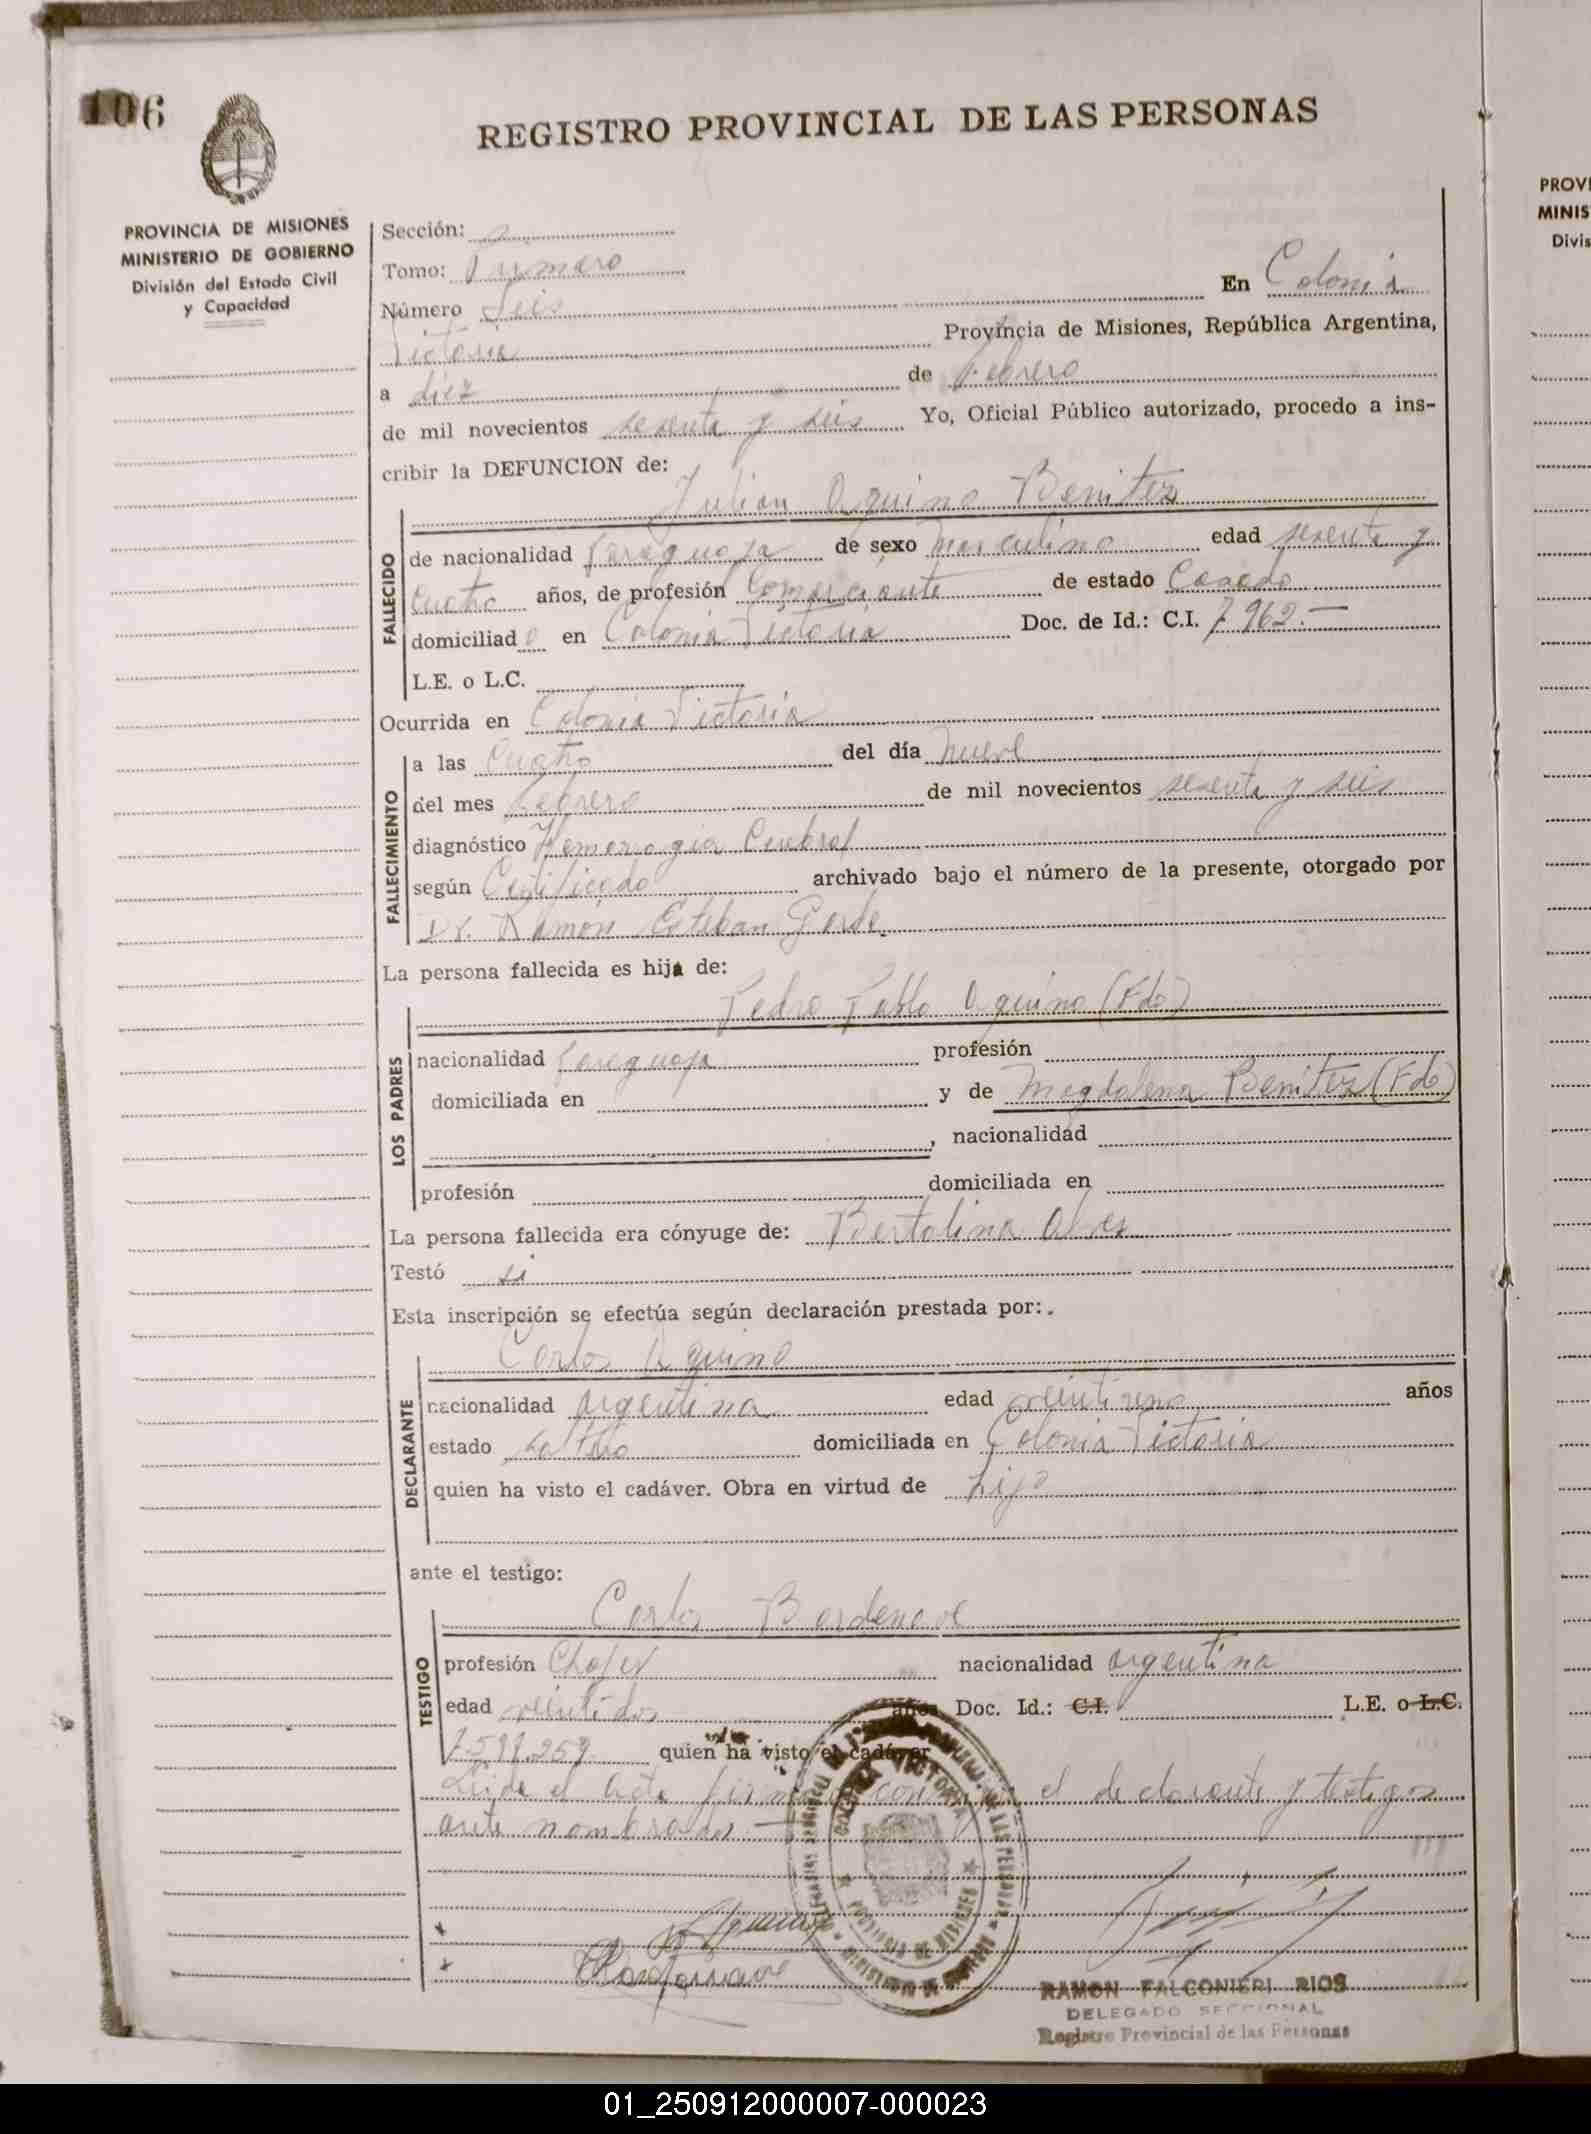 106
REGISTRO PROVINCIAL DE LAS PERSONAS
PROVINCIA DE MISIONES
MINISTERIO DE GOBIERNO
División del Estado Civil
y Capacidad
Sección:
Tomo: Primero
Número Seis En Colonia
Victoria Provincia de Misiones, República Argentina,
a diez de Febrero
de mil novecientos sesenta y seis Yo, Oficial Público autorizado, procedo a ins-
cribir la DEFUNCION de:
Julian Aquino Benitez
FALLECIDO
de nacionalidad Paraguaya de sexo masculino edad sesenta y
Cuatro años, de profesión Comerciante de estado Casado
domiciliado en Colonia Victoria Doc. de Id.: C.I. 7.962.—
L.E. o L.C.
Ocurrida en Colonia Victoria
FALLECIMIENTO
a las Cuatro del día nueve
del mes Febrero de mil novecientos sesenta y seis
diagnóstico Hemorragia Cerebral
según Certificado archivado bajo el número de la presente, otorgado por
Dr. Ramón Esteban
La persona fallecida es hija de:
Pedro Pablo Aquino (Fdo)
LOS PADRES
nacionalidad Paraguaya profesión
domiciliada en y de Magdalena Benitez (Fdo)
, nacionalidad
profesión domiciliada en
La persona fallecida era cónyuge de: Bertolina Alves
Testó si
Esta inscripción se efectúa según declaración prestada por:
Carlos Aquino
DECLARANTE
nacionalidad Argentina edad veintiuno años
estado soltero domiciliada en Colonia Victoria
quien ha visto el cadáver. Obra en virtud de hijo
ante el testigo:
Carlos Bordenave
TESTIGO
profesión Chofer nacionalidad argentina
edad veintidos años Doc. Id.: C.I. L.E. o L.C.
7.597.259 quien ha visto el cadáver
Leida el acta firman conmigo el declarante y testigos
ante nombrados —
COLONIA VICTORIA
PROVINCIA DE MISIONES
RAMON FALCONIERI RIOS
DELEGADO SECCIONAL
Registro Provincial de las Personas
PROVI
MINIS
Divis
01_250912000007-000023